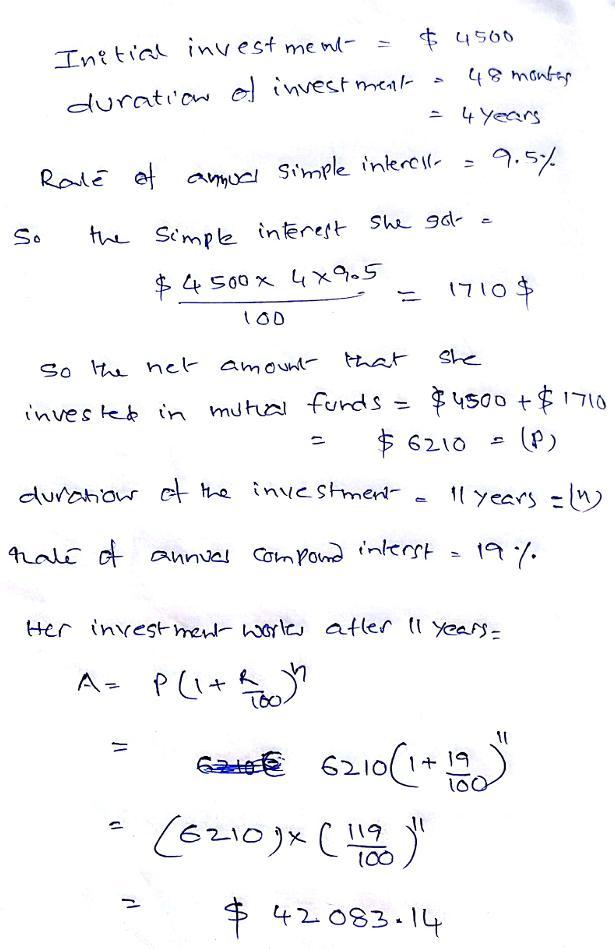 Initial investment = $ 4500
duration of investment = 48 months
= 4 years
Rate of annual simple interest = 9.5%
So the simple interest she got =
$ 4500 x 4 x 9.5 / 100 = 1710 $
So the net amount that she
invested in mutual funds = $4500 + $1710
= $ 6210 = (P)
duration of the investment = 11 years = (n)
rate of annual compound interst = 19 %.
Her investment worter after 11 years =
A = P(1 + R/100)^n
= 6210(1 + 19/100)^11
= (6210) x (119/100)^11
= $ 42083.14